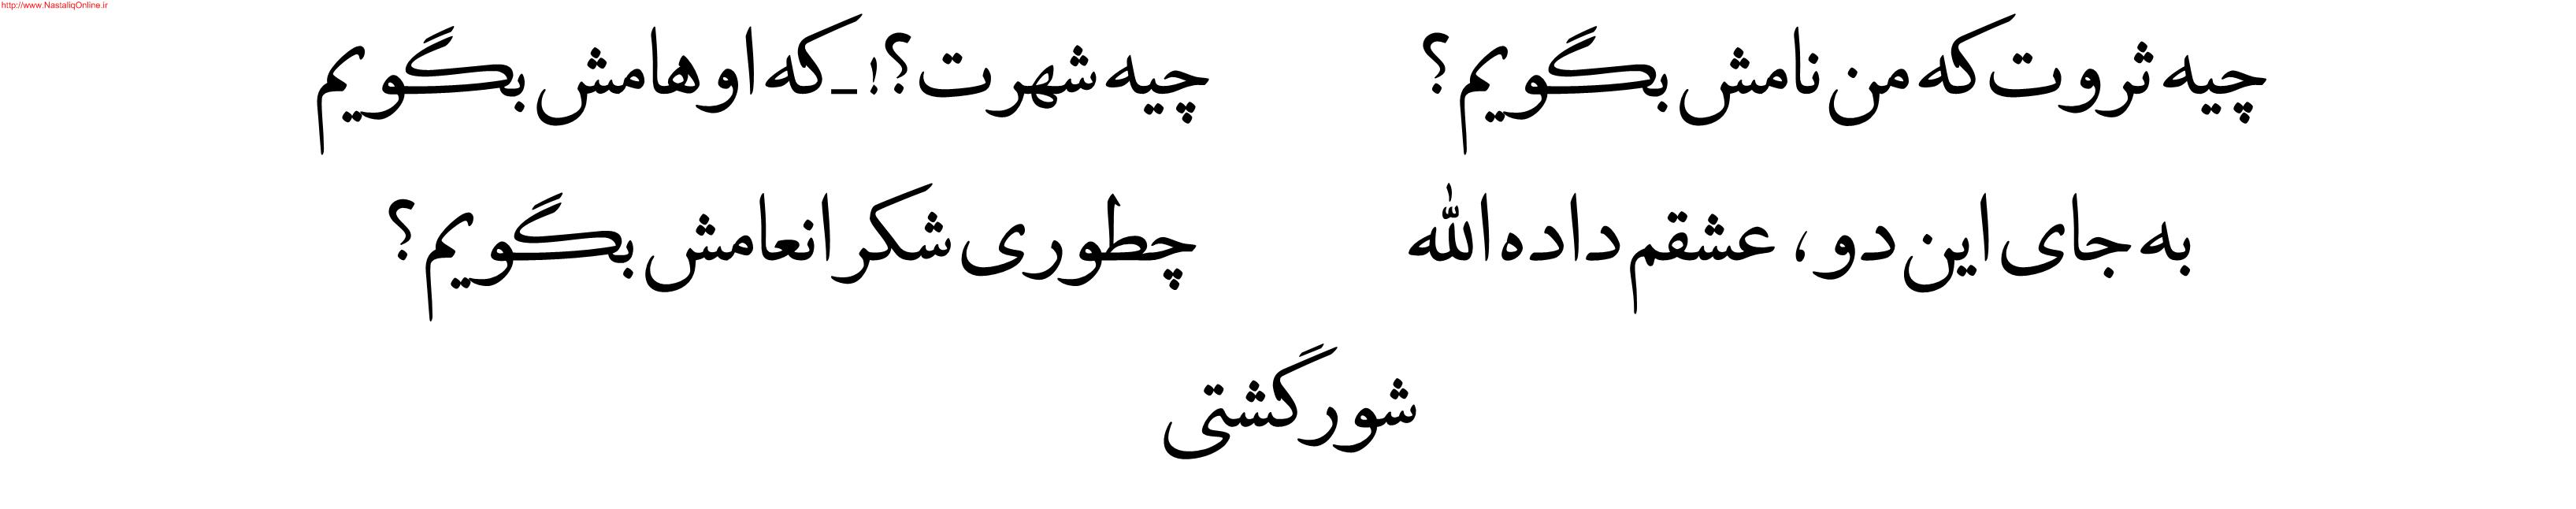 http://www.NastaliqOnline.ir
چیه ثروت که من نامش بگویم؟ چیه شهرت؟!_که اوهامش بگویم
به جای این دو ، عشقم داده الله چطوری شکر انعامش بگویم؟
شورگشتی